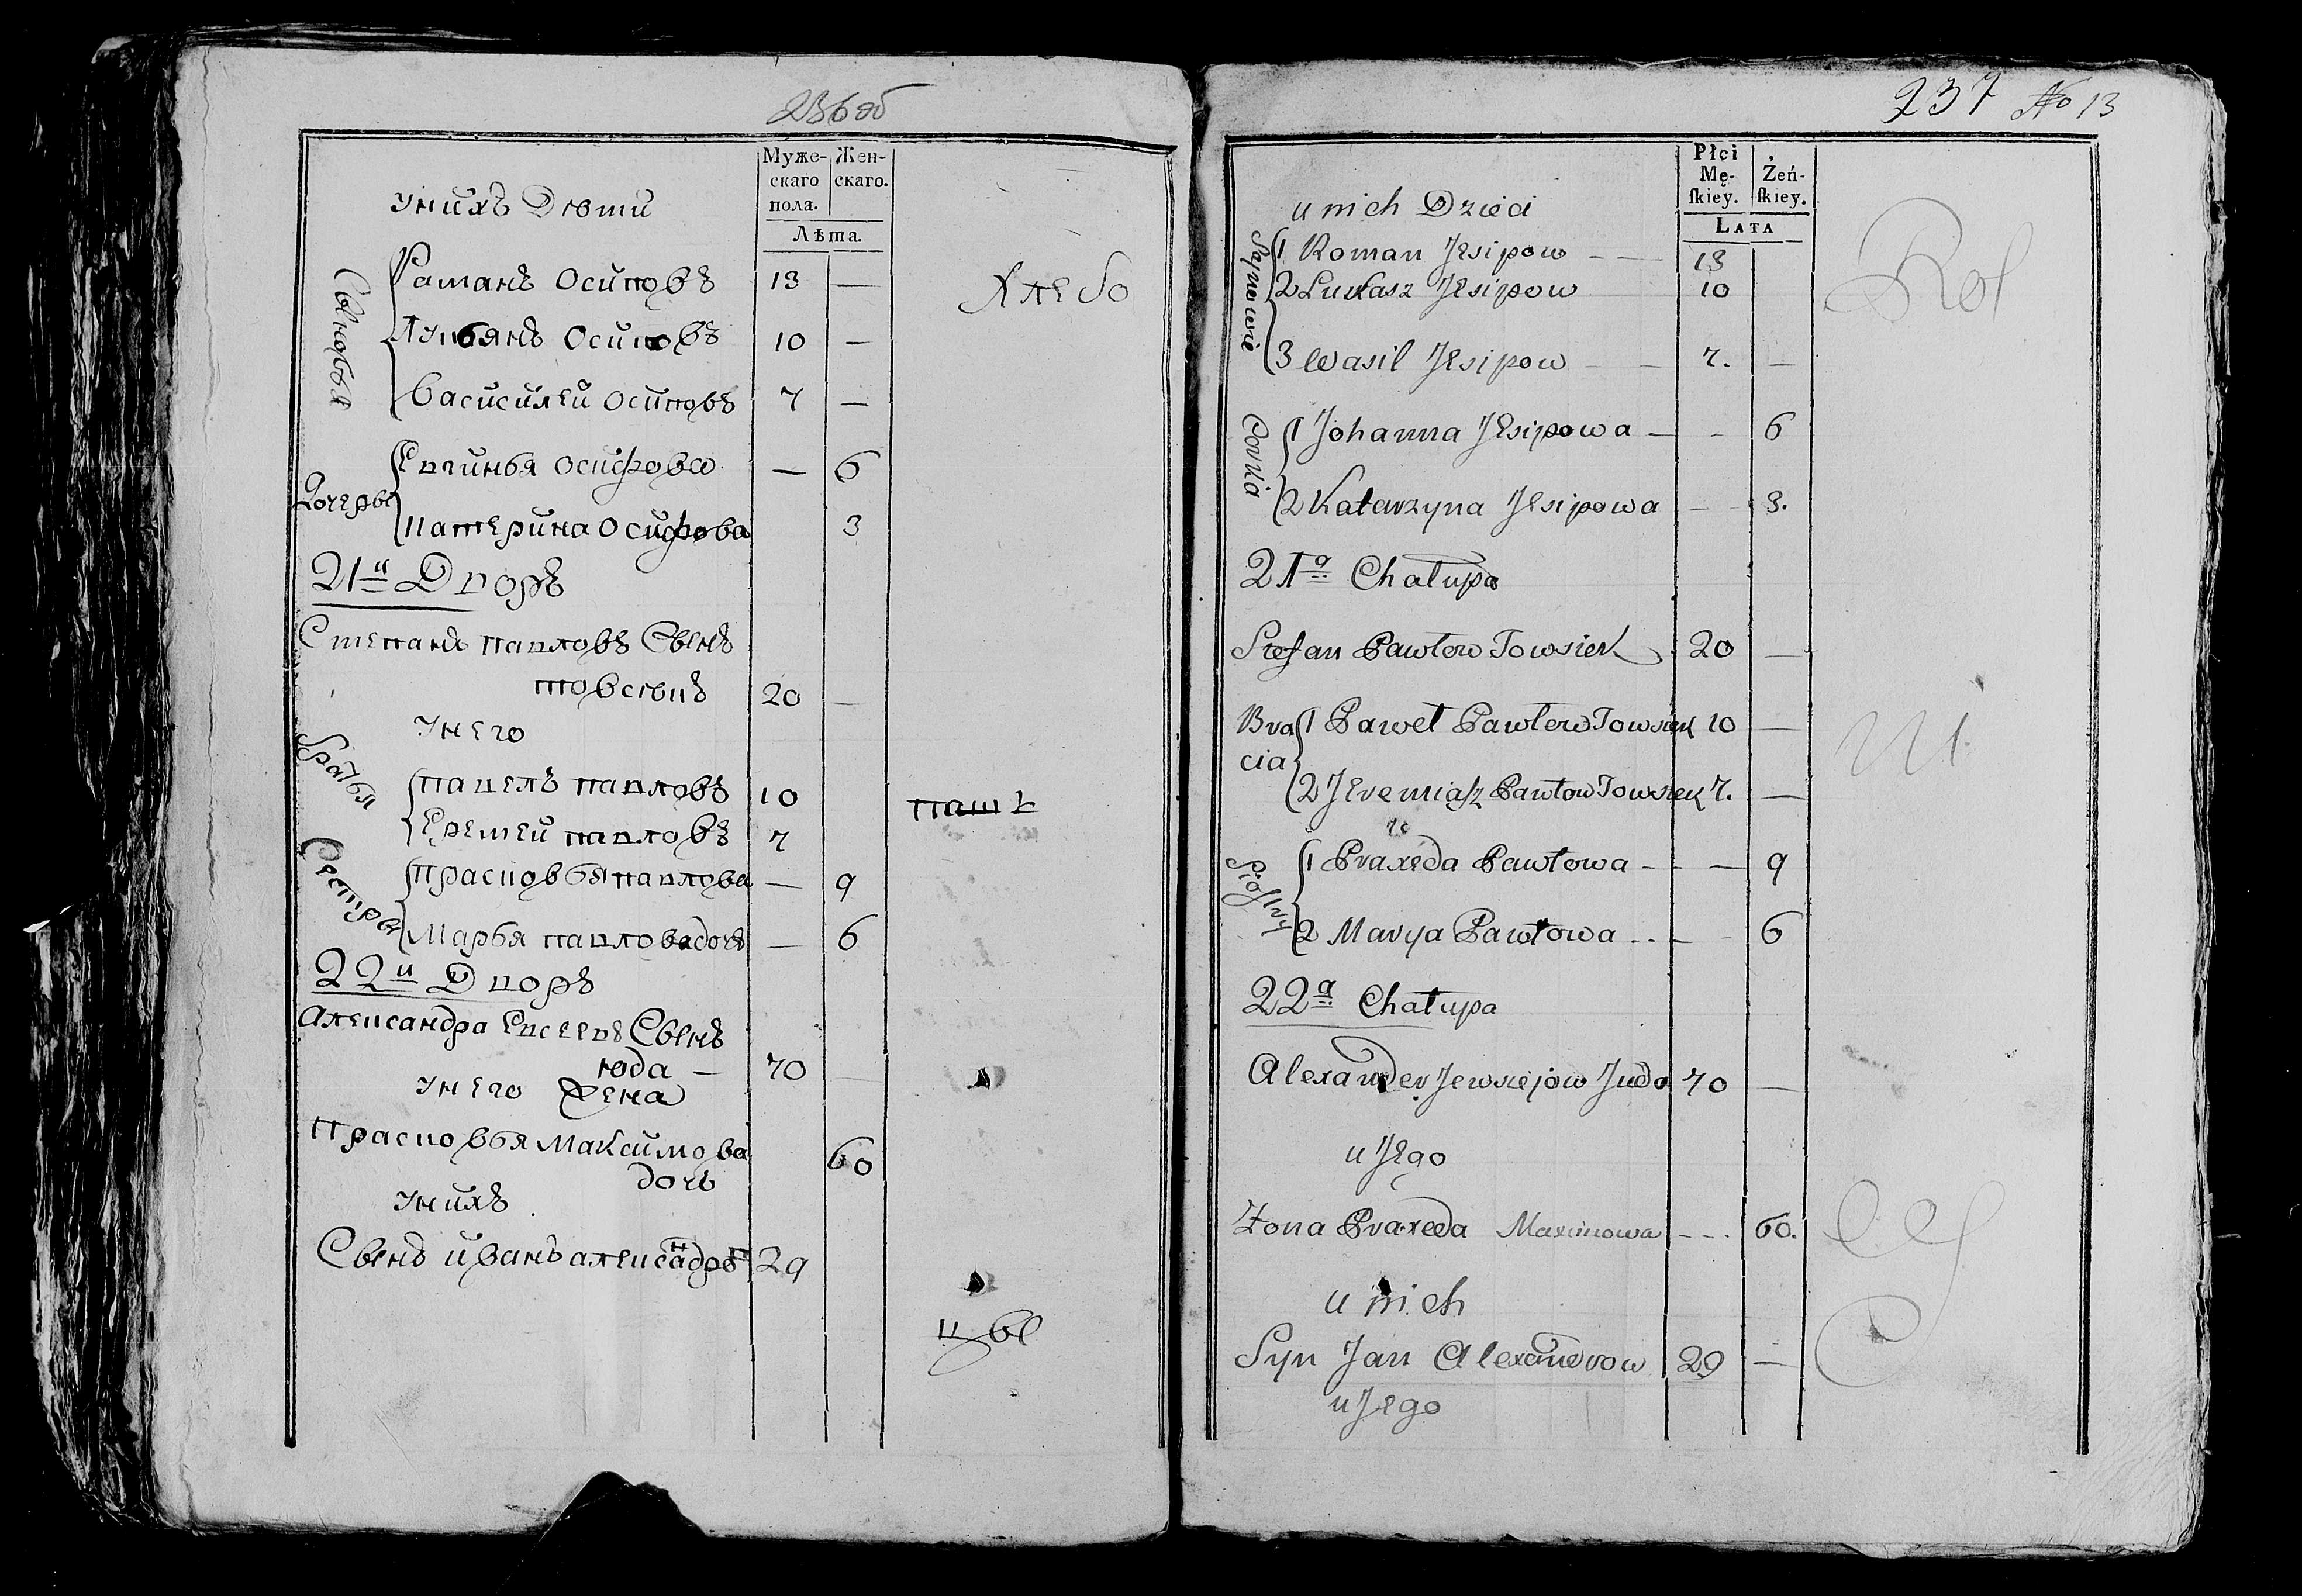 236 об
Муже-
скаго
пола.
Жен-
скаго.
Лѣта.
Унихъ Дѣти
Сыновья
Раманъ Осиповъ 13 —
Лукьянъ Осиповъ 10 —
Васисилей Осиповъ 7 —
Дочеръи
Евгинья Осифова — 6
Катерина Осифова 3
21й Дворъ
Степанъ Павловъ Сынъ
Товсѣкъ 20 —
Унего
братья
Павелъ Павловъ 10
Еремей Павловъ 7
Сестры
Прасковья Павлова — 9
Марья Павлова дочь — 6
22й Дворъ
Александра Евсеевъ Сынъ
Юда — 70 —
Унего Жена
Прасковья Максимова 60
дочь
Унихъ
Сынъ Иванъ Александровъ 29
Хлебо
паш
цы
237 No 13
Płci
Mę-
ſkiey.
Żeń-
ſkiey.
LATA
u nich Dzieci
Synowie
1 Roman Jesipow — — 13
2 Lukasz Jesipow 10
3 Wasil Jesipow — — 7. —
Corki
1 Johanna Jesipowa — - 6
2 Katarzyna Jesipowa — - 3.
21a Chałupa
Stefan Pawłow Towsiek 20 —
Bra
cia
1 Paweł Pawłow Towsiek 10 —
2 Jeremiasz Pawłow Towsiek 7. —
Siostry
1 Praxeda Pawłowa - - — 9
2 Marya Pawłowa - - — - 6
22a Chałupa
Alexander Jewsiejow Juda 70 —
u Jego
Żona Praxeda Maximowa - - - 60.
u nich
Syn Jan Alexandrow 29 —
u Jego
Rol
ni
cy